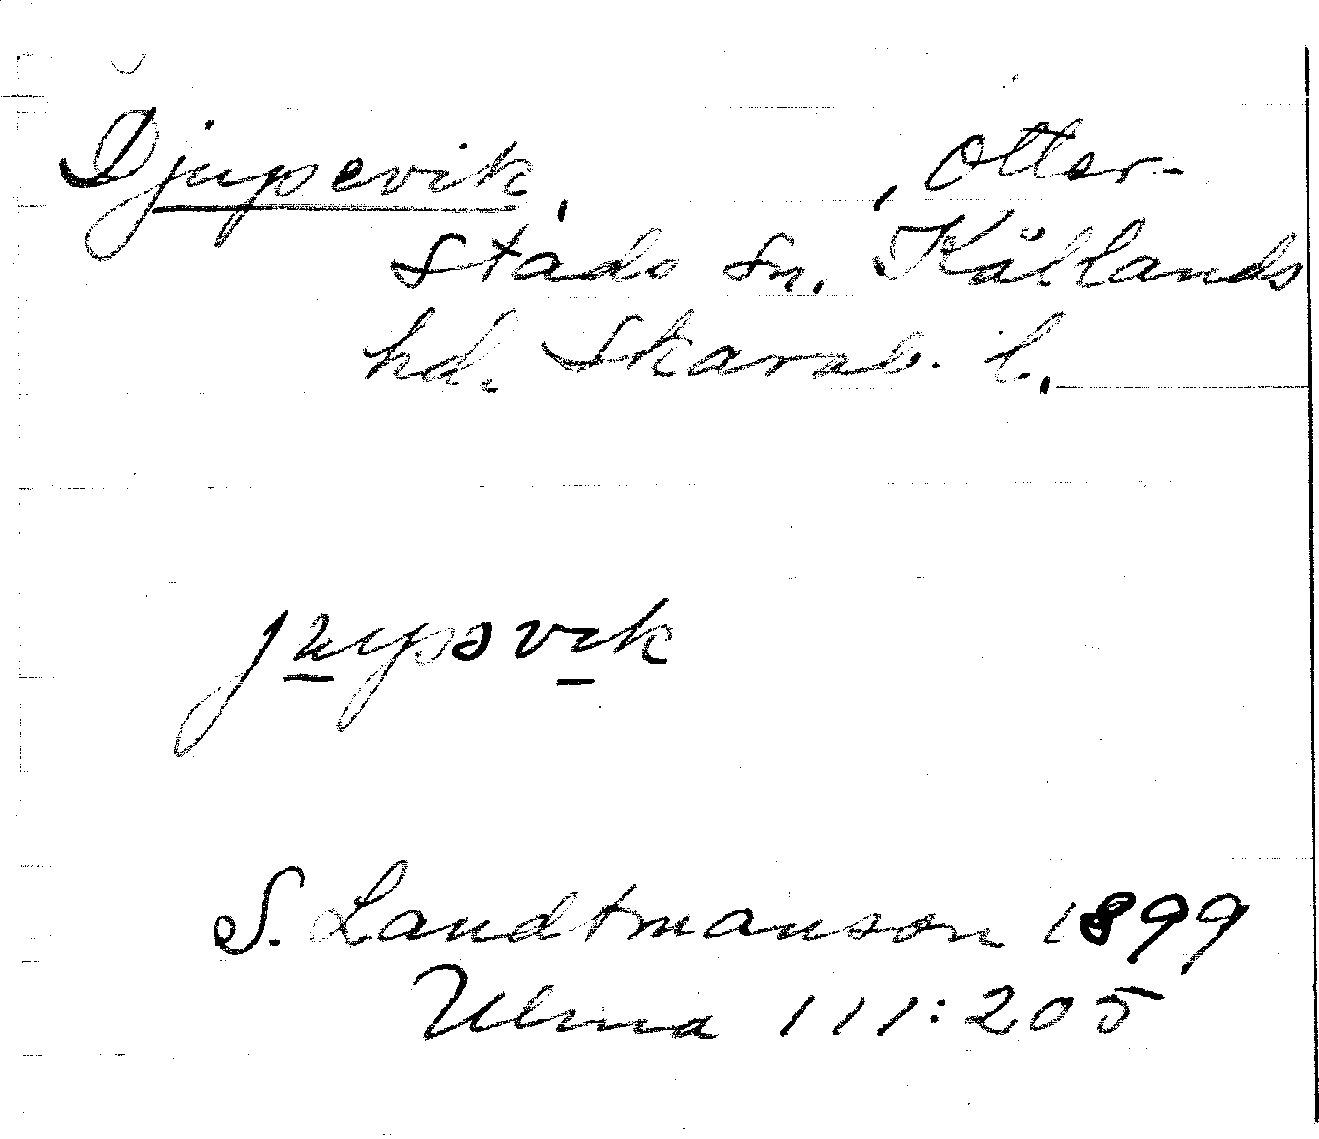 Djupevik, , Otter-
stads sn. Kållands
hd. Skarab. l.
S. Landtmanson 1899
Ulma 111:205